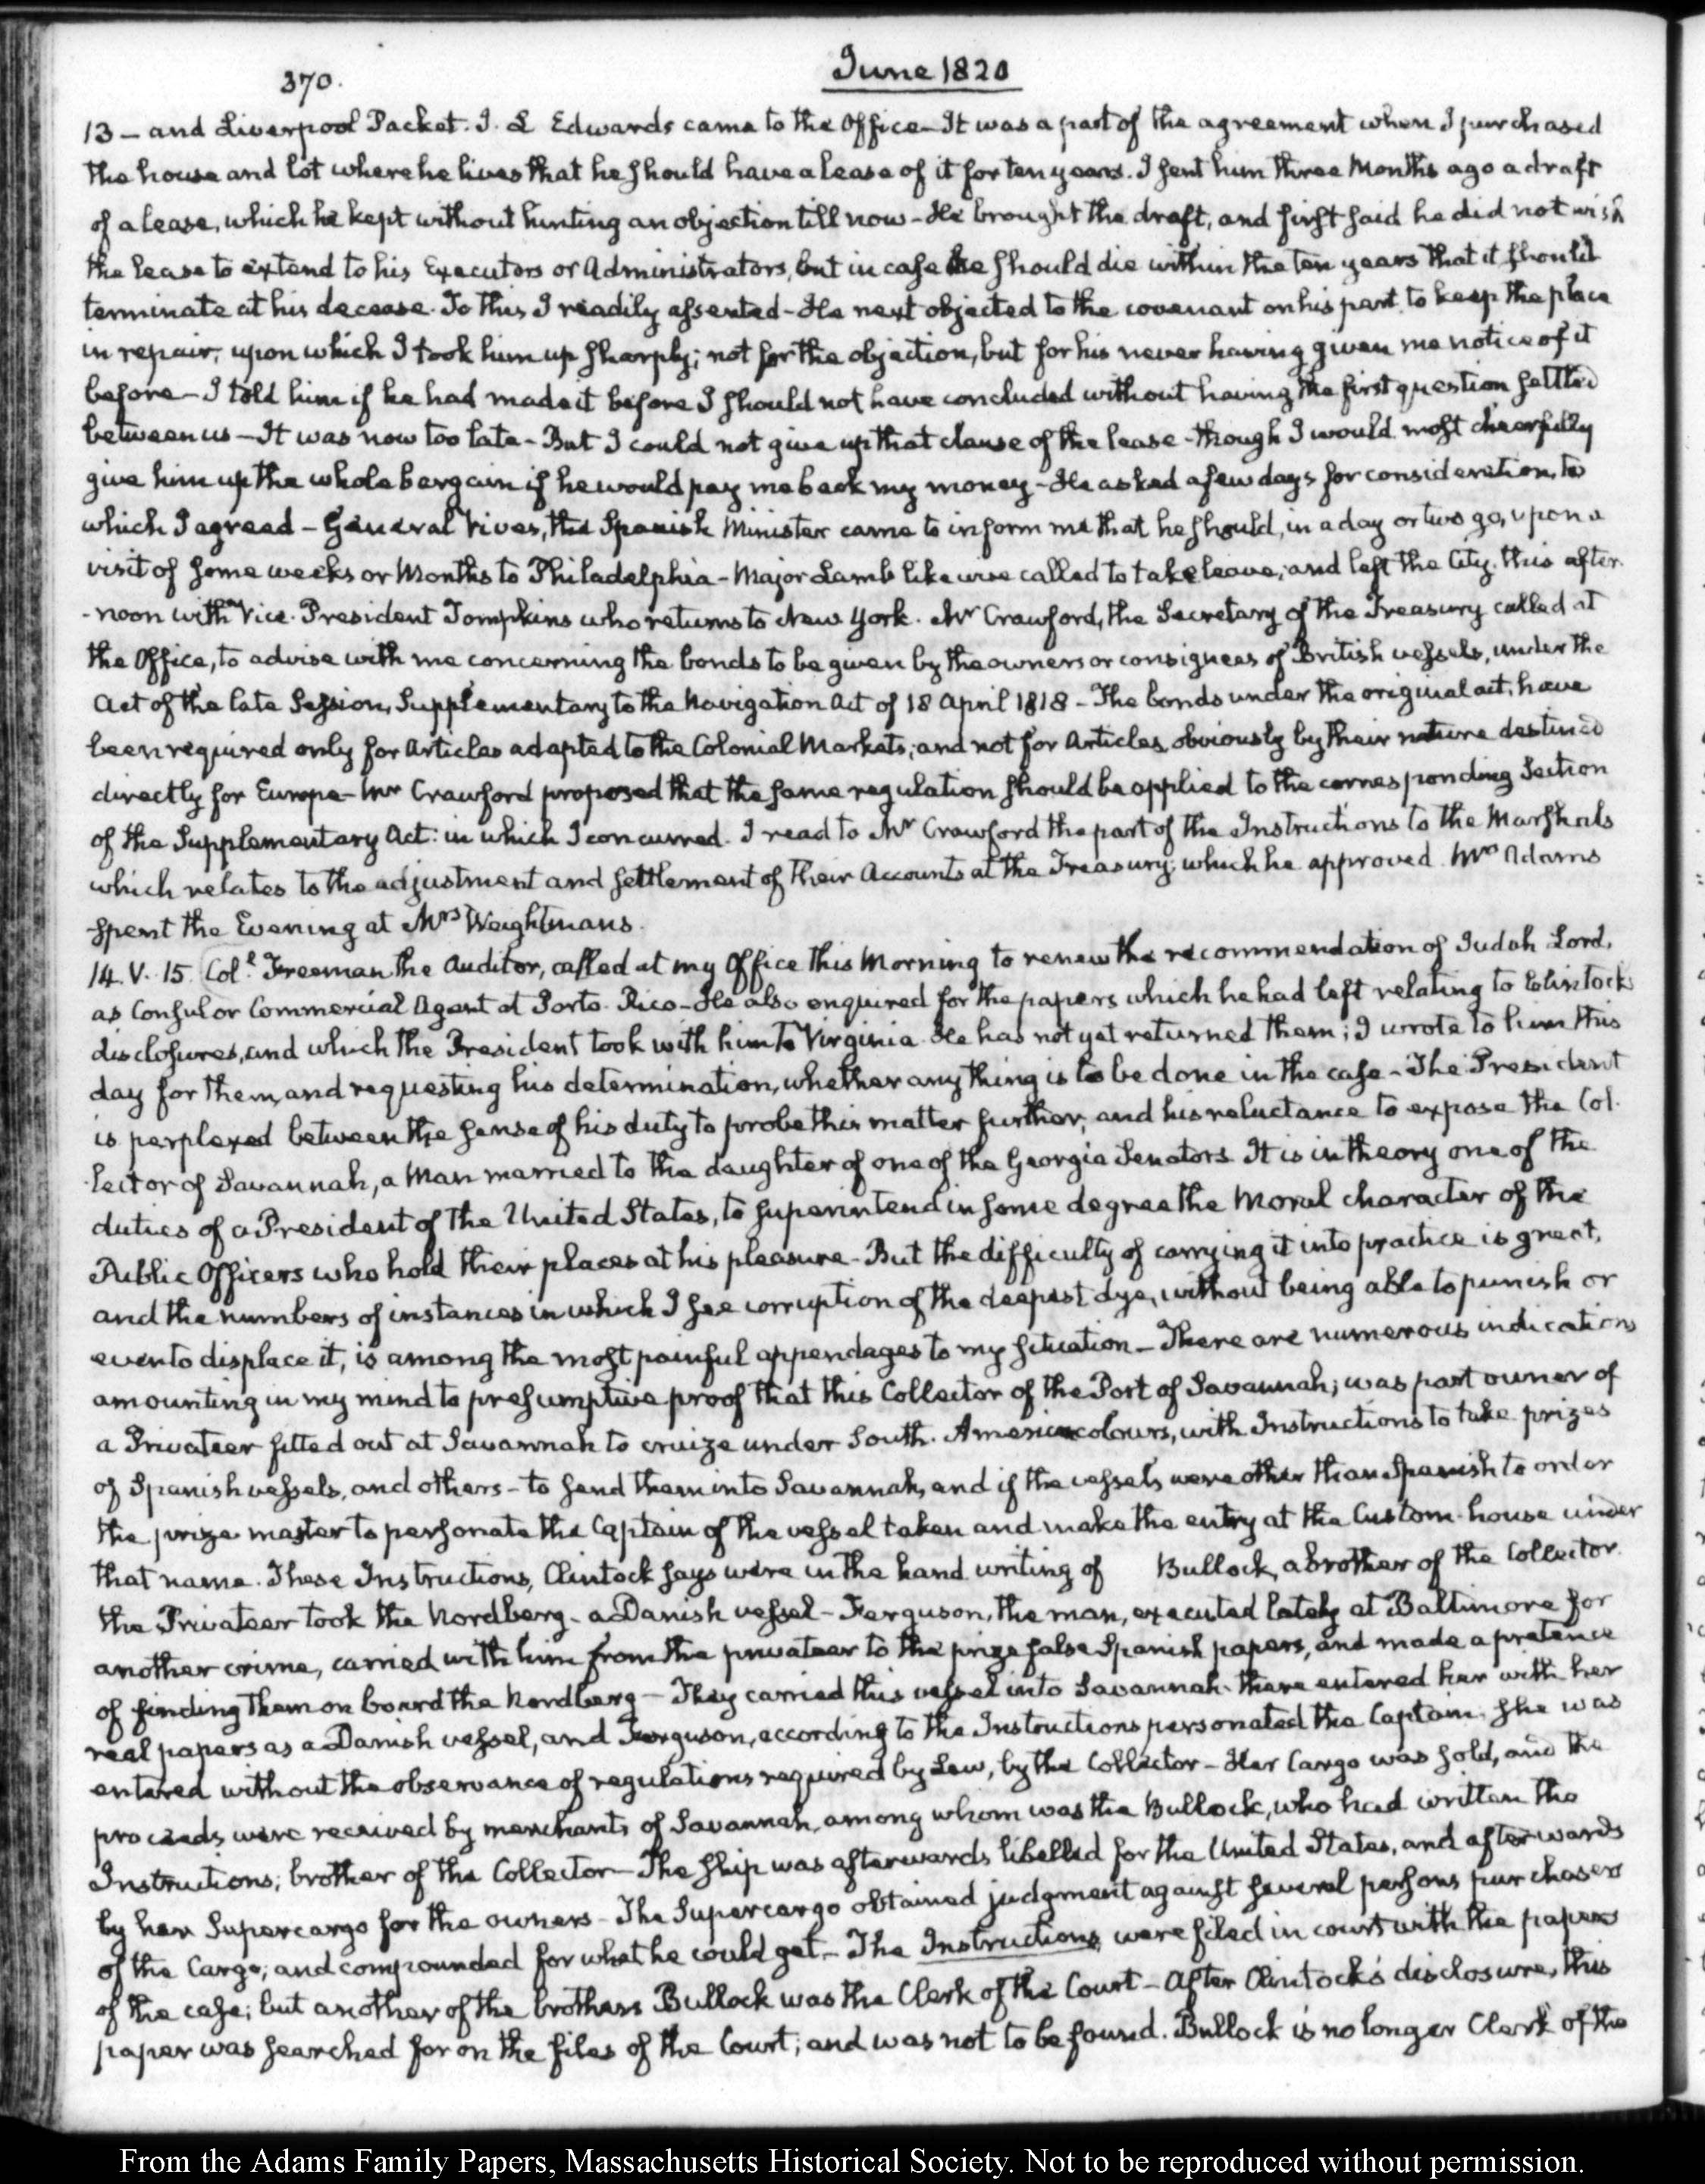 370.
June 1820
13 – and Liverpool Packet. J. L Edwards came to the Office – It was a part of the agreement when I purchased
the house and lot where he lives that he should have a lease of it for ten years. I sent him three Months ago a draft
of a lease, which he kept without hinting an objection till now – He brought the draft, and first said he did not wish
the lease to extend to his Executors or Administrators, but in case he should die within the ten years that it should
terminate at his decease. To this I readily assented – He next objected to the covenant on his part to keep the place
in repair; upon which I took him up sharply; not for the objection, but for his never having given me notice of it
before – I told him if he had made it before I should not have concluded without having the first question settled
between us – It was now too late – But I could not give up that clause of the lease – though I would most cheerfully
give him up the whole bargain if he would pay me back my money – He asked a few days for consideration, to
which I agreed – General Vives, the Spanish Minister came to inform me that he should, in a day or two go, upon a
visit of some weeks or Months to Philadelphia – Major Lamb likewise called to take leave; and left the City this after-
-noon with Vice-President Tompkins who returns to New York. Mr Crawford, the Secretary of the Treasury called at
the Office, to advise with me concerning the bonds to be given by the owners or consignees of British vessels, under the
Act of the late Session, Supplementary to the Navigation Act of 18 April 1818 – The bonds under the original act, have
been required only for Articles adapted to the Colonial Markets; and not for Articles obviously by their nature destined
directly for Europe – Mr Crawford proposed that the same regulation should be applied to the corresponding Section
of the Supplementary Act: in which I concurred. I read to Mr Crawford the part of the Instructions to the Marshals
which relates to the adjustment and settlement of their Accounts at the Treasury; which he approved. Mrs Adams
spent the Evening at Mrs Weightmans.
14. V. 15. Col.l Freeman the Auditor, called at my Office this Morning to renew the recommendation of Judah Lord,
as Consul or Commercial Agent at Porto-Rico – He also enquired for the papers which he had left relating to Clintock's
disclosures, and which the President took with him to Virginia. He has not yet returned them; I wrote to him this
day for them, and requesting his determination, whether any thing is to be done in the case – The President
is perplexed between the sense of his duty to probe this matter further, and his reluctance to expose the Col-
-lector of Savannah, a Man married to the daughter of one of the Georgia Senators. It is in theory one of the
duties of a President of the United States, to superintend in some degree the Moral character of the
Public Officers who hold their places at his pleasure – But the difficulty of carrying it into practice is great,
and the numbers of instances in which I see corruption of the deepest dye, without being able to punish or
even to displace it, is among the most painful appendages to my situation – There are numerous indications
amounting in my mind to presumptive proof that this Collector of the Port of Savannah; was part owner of
a Privateer fitted out at Savannah to cruize under South-American colours, with Instructions to take prizes
of Spanish vessels, and others – to send them into Savannah, and if the vessels were other than Spanish to order
the prize-master to personate the Captain of the vessel taken and make the entry at the Custom-house under
that name. These Instructions, Clintock says were in the hand writing of Bullock, a brother of the Collector.
the Privateer took the Nordberg – a Danish vessel – Ferguson, the man, executed lately at Baltimore for
another crime, carried with him from the privateer to the prize false Spanish papers, and made a pretence
of finding them on board the Nordberg – They carried this vessel into Savannah – there entered her with her
real papers as a Danish vessel, and Ferguson, according to the Instructions personated the Captain. She was
entered without the observance of regulations required by Law, by the Collector – Her Cargo was sold, and the
proceeds were received by merchants of Savannah, among whom was the Bullock, who had written the
Instructions; brother of the Collector – The ship was afterwards libelled for the United States, and afterwards
by her Supercargo for the owners – The Supercargo obtained judgment against several persons purchasers
of the Cargo; and compounded for what he could get – The Instructions were filed in court with the papers
of the case; but another of the brothers Bullock was the Clerk of the Court – After Clintock's disclosure, this
paper was searched for on the files of the Court; and was not to be found. Bullock is no longer Clerk of the
From the Adams Family Papers, Massachusetts Historical Society. Not to be reproduced without permission.